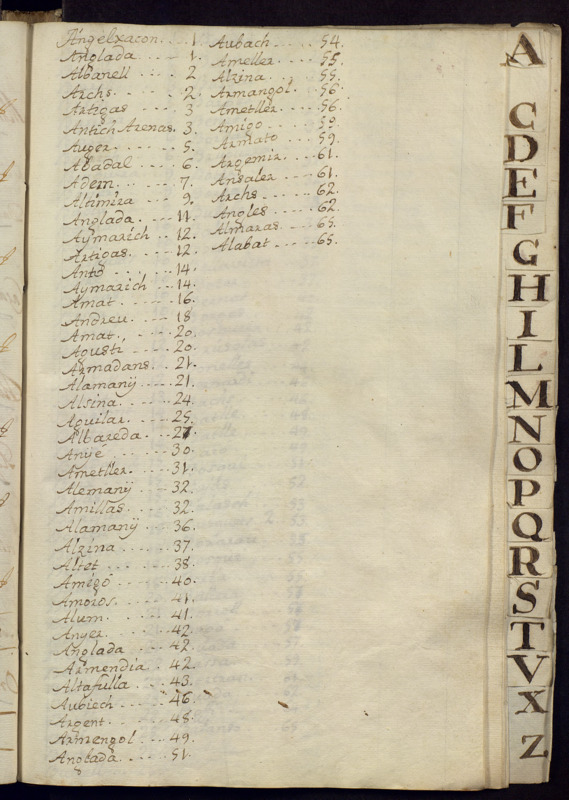 Angelxacon.....1.
Anglada.....1.
Albanell....2
Archs.....2.
Artigas....3
Antich Arenas.3.
Auger.....5.
Abadal....6.
Adem....7.
Alnimira...9.
Anglada....11.
Aymarich..12.
Artigas....12.
Antó.....14.
Aymarich..14.
Amat.....16.
Andreu....18
Amat.....20.
Agusti....20.
Armadans..21.
Alamany...21.
Alsina....24.
Aguilar...25.
Albareda..27
Anye.....30.
Ametller...31.
Alemany...32.
Amillas...32.
Alamany...36.
Alzina.....37.
Altet.....38.
Amigó.....40.
Amoros....41.
Alum.....41.
Anyer.....42.
Anglada...42.
Armendia..42.
Altafulla...43.
Aubiech....46.
Argent....48.
Armengol...49.
Anglada....51.
Aubach.....54.
Ameller....55.
Alzina.....55.
Armangol.56
Ametller...56.
Amigo.....59.
Armato....59.
Argemir...61.
Ansaler...61.
Archs.....62.
Angles....62.
Almaras...65.
Alabat....65.
A
C
D
E
F
G
H
I
L
M
N
O
P
Q
R
S
T
V
X
Z